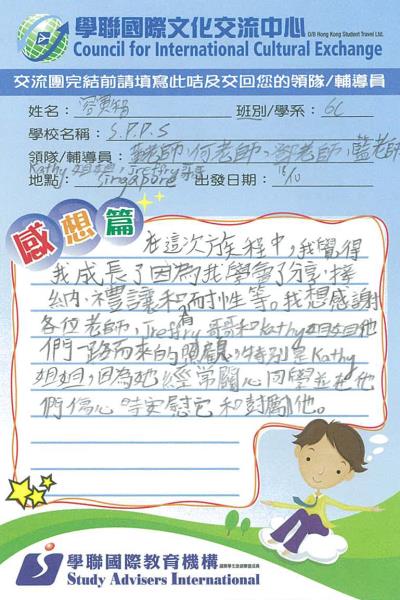 學聯國際文化交流中心 O/B Hong Kong Student Travel Ltd.
Council for International Cultural Exchange
交流團完結前請填寫此咭及交回您的領隊/輔導員
姓名: 班別/學系: 6C
學校名稱: S.P.P.S
領隊/輔導員: 老師,何老師、鄧老師,藍老師
Kathy 姐姐, 哥哥
地點: Singapore 出發日期: 18/10
感想篇
在這次旅程中,我覺得
我成長了因為我學會了分享,接
納,禮讓和耐性等。我想感謝
各位老師, 哥哥和Kathy姐姐他
們一路而來的照顧,特別是Kathy
姐姐,因為她經常關心同學並在他
們傷心時安慰它和封勵他。
學聯國際教育機構
Study Advisers International